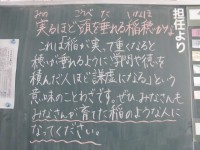 担任より
みの こうべ た いなほ
実るほど頭を垂れる稲穂かな
これは「稲が実って重くなると
穂が垂れるように学問や徳を
積んだ人ほど謙虚になる」という
意味のことわざです。ぜひ、みなさんも
みなさんが育てた稲のような人に
なってください。